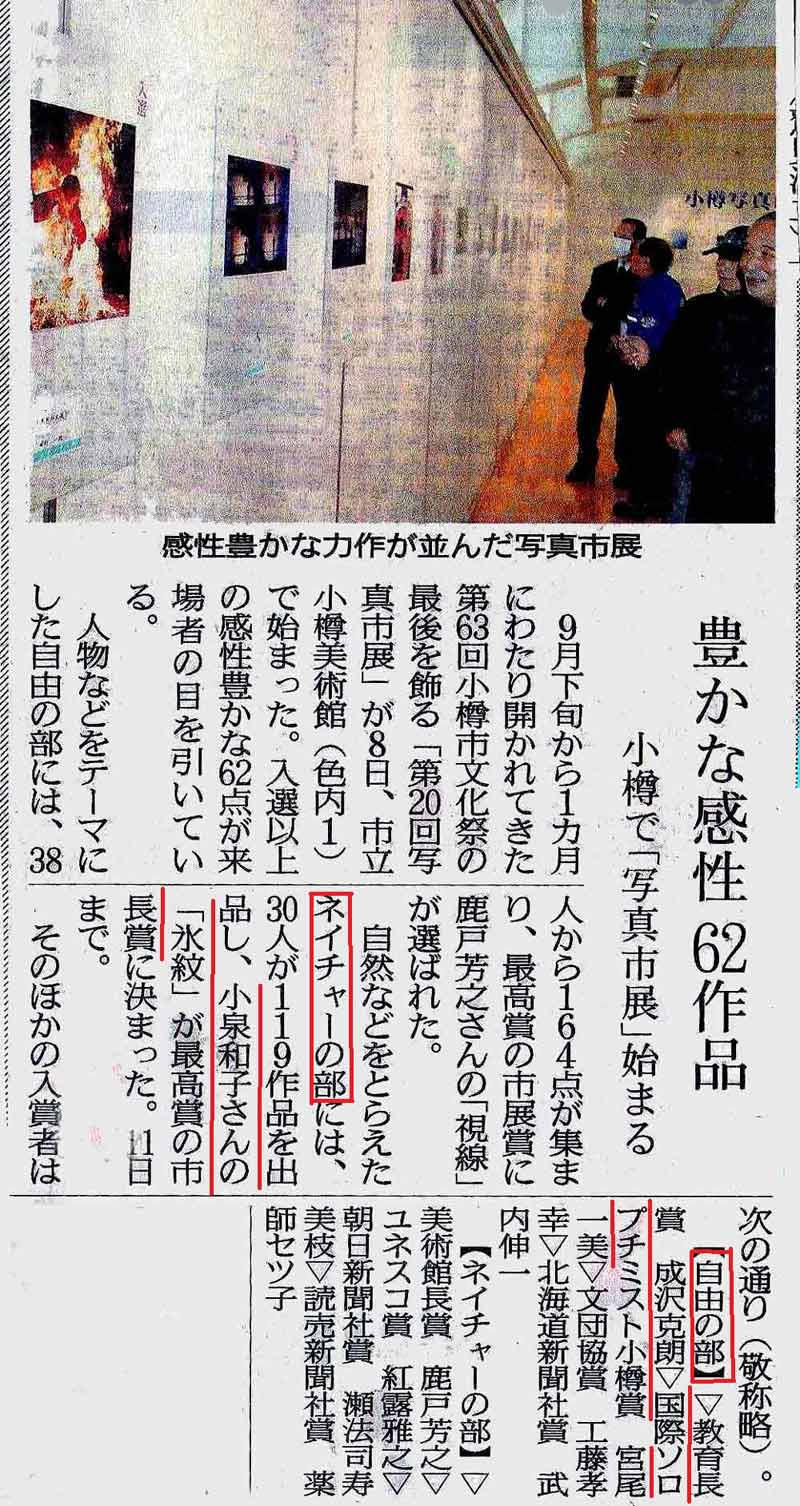 入選
小樽写真
感性豊かな力作が並んだ写真市展
豊かな感性 62作品
小樽で「写真市展」始まる
9月下旬から1カ月
にわたり開かれてきた
第63回小樽市文化祭の
最後を飾る「第20回写
真市展」が8日、市立
小樽美術館（色内1）
で始まった。入選以上
の感性豊かな62点が来
場者の目を引いてい
る。
人物などをテーマに
した自由の部には、38
人から164点が集ま
り、最高賞の市展賞に
鹿戸芳之さんの「視線」
が選ばれた。
自然などをとらえた
ネイチャーの部には、
30人が119作品を出
品し、小泉和子さんの
「氷紋」が最高賞の市
長賞に決まった。11日
まで。
そのほかの入賞者は
次の通り（敬称略）。
【自由の部】▽教育長
賞 成沢克朗▽国際ソロ
プチミスト小樽賞 宮尾
一美▽文団協賞 工藤孝
幸▽北海道新聞社賞 武
内伸一
【ネイチャーの部】▽
美術館長賞 鹿戸芳之▽
ユネスコ賞 紅露雅之▽
朝日新聞社賞 瀬法司寿
美枝▽読売新聞社賞 薬
師セツ子